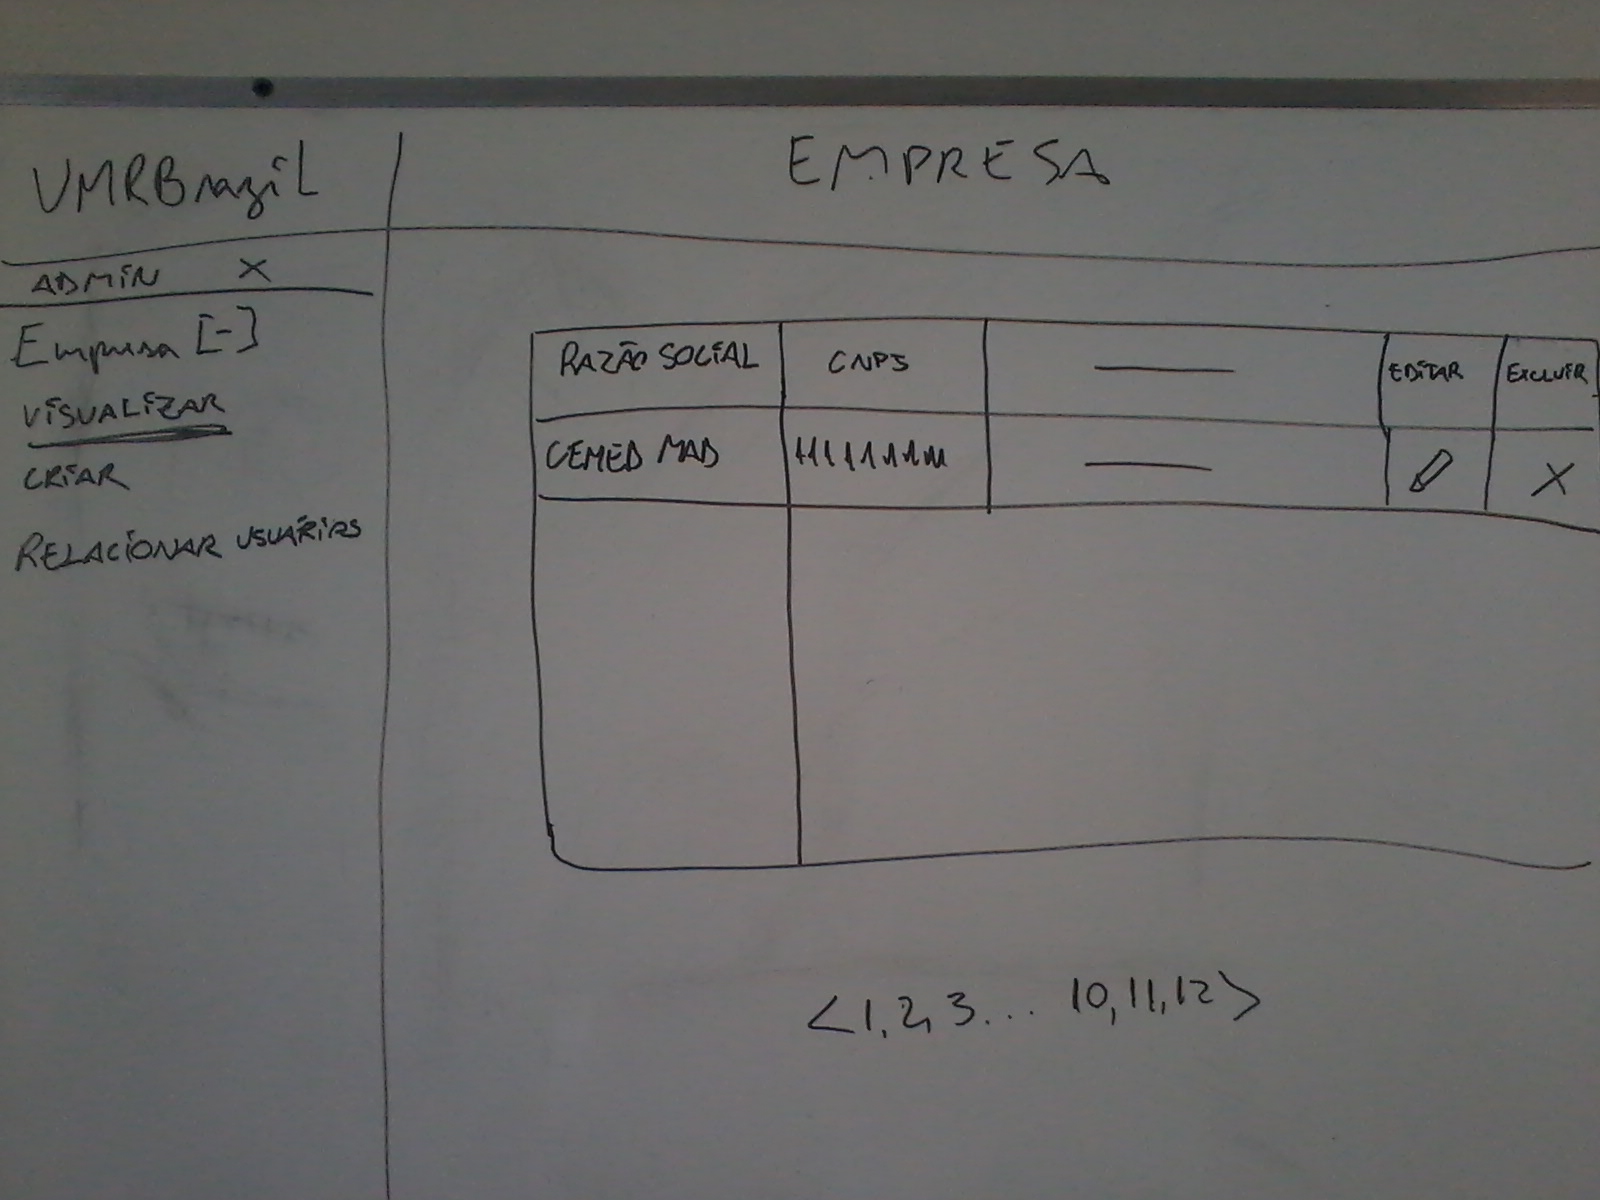 VMRBrazil
EMPRESA
ADMIN X
Empresa [-]
VISUALIZAR
CRIAR
RELACIONAR USUÁRIOS
RAZÃO SOCIAL CNPJ EDITAR EXCLUIR
CEMED MAB X
<1,2,3... 10,11,12>